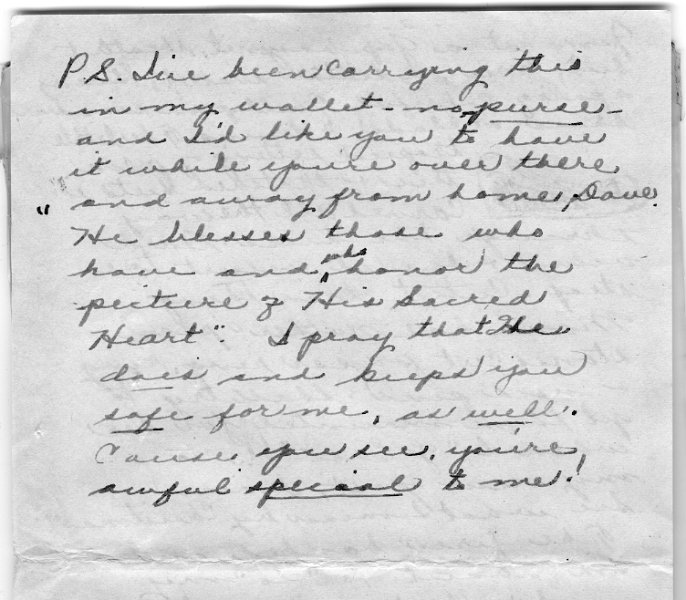 P.S. I've been carrying this
in my wallet - no, purse -
and I'd like you to have
it while you're over there
and away from home, Dave.
"He blesses those who
have and who honor the
picture of His Sacred
Heart". I pray that He
does and keeps you
safe for me, as well.
'Cause you see, you're,
awful special to me!